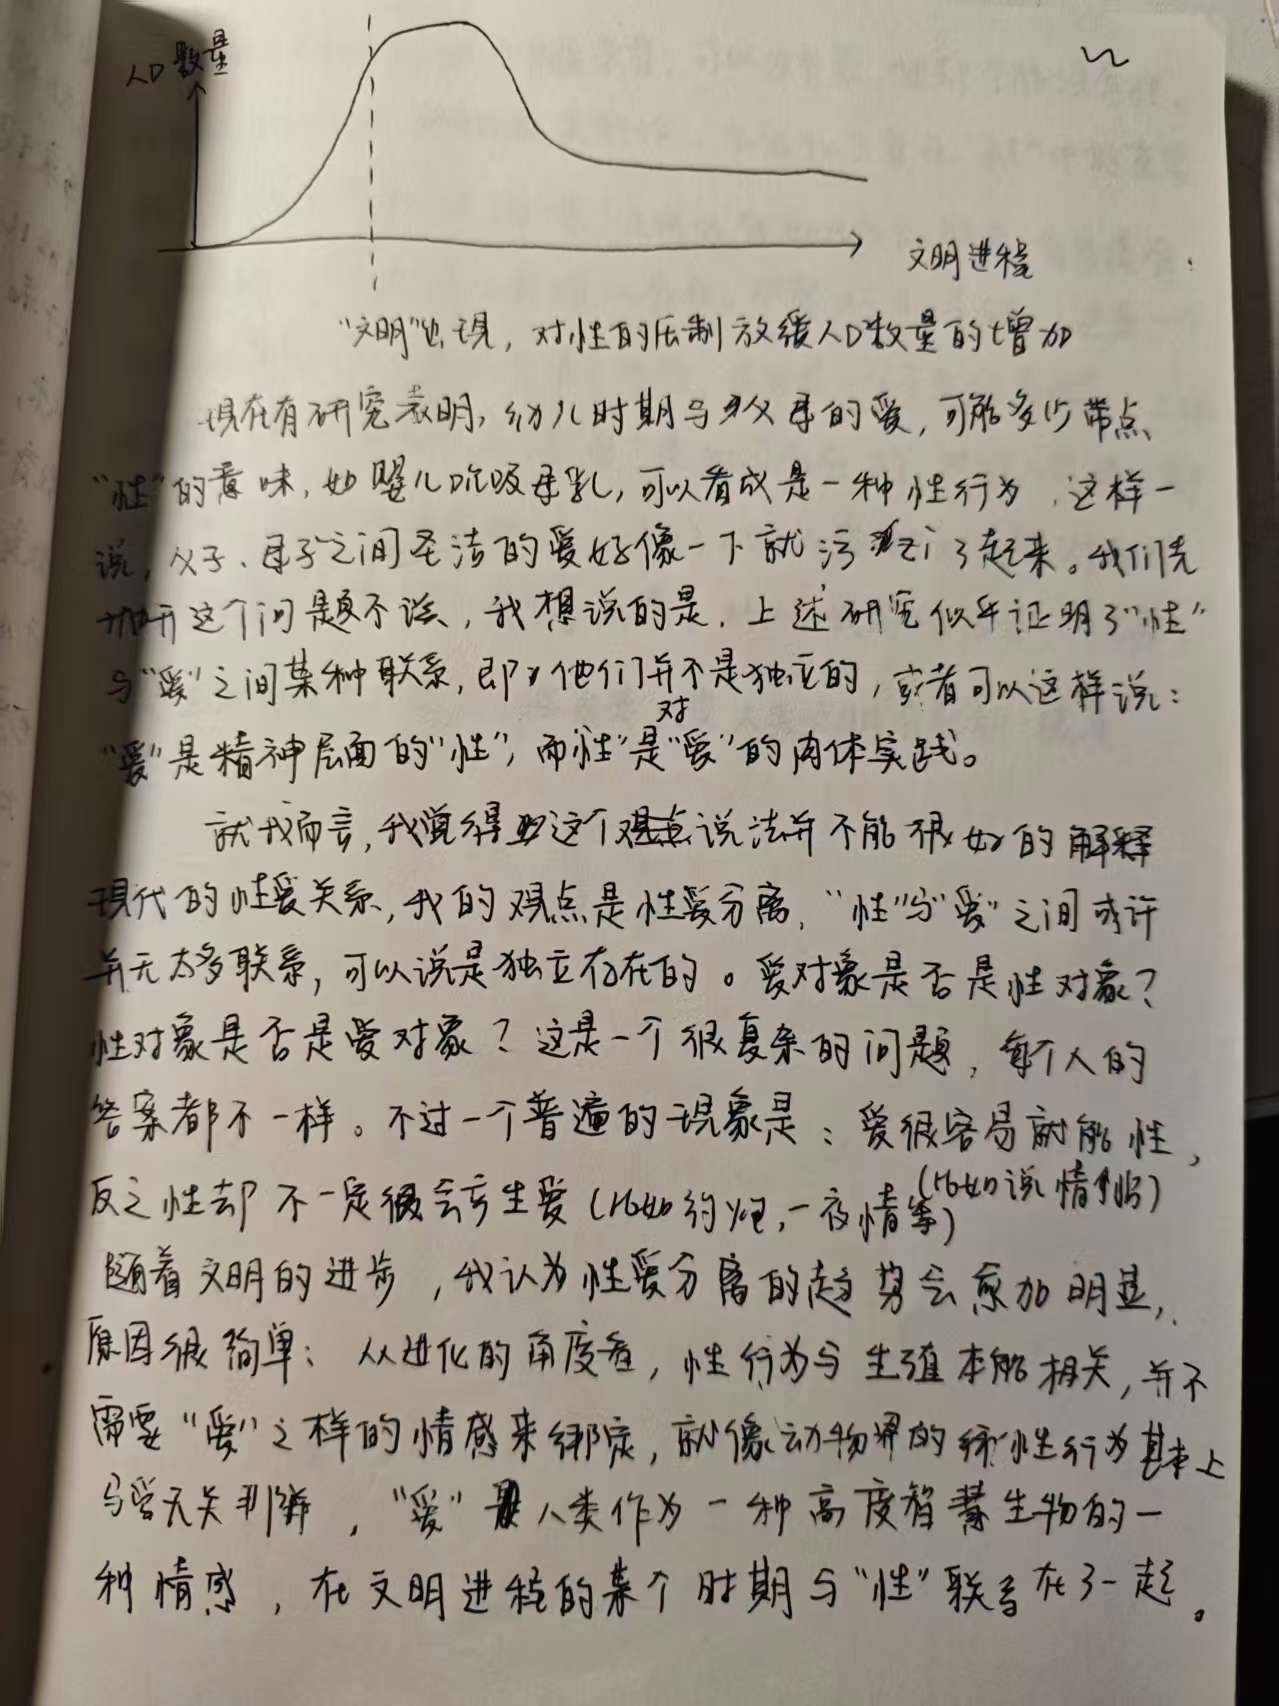 人口数量
文明进程
"文明"出现，对性的压制放缓人口数量的增加
现在有研究表明，幼儿时期与父母的爱，可能多少带点
"性"的意味，如婴儿吮吸母乳，可以看成是一种性行为，这样一
说，父子、母子之间圣洁的爱好像一下就污了起来。我们先
抛开这个问题不谈，我想说的是，上述研究似乎证明了"性"
与"爱"之间某种联系，即他们并不是独立的，或者可以这样说：
对
"爱"是精神层面的"性"，而"性"是"爱"的肉体实践。
就我而言，我觉得这个说法并不能很好的解释
现代的性爱关系，我的观点是性爱分离，"性"与"爱"之间或许
并无太多联系，可以说是独立存在的。爱对象是否是性对象？
性对象是否是爱对象？这是一个很复杂的问题，每个人的
答案都不一样。不过一个普遍的现象是：爱很容易就能性，
反之性却不一定会产生爱（比如约炮，一夜情等）
（比如说情侣）
随着文明的进步，我认为性爱分离的趋势会愈加明显，
原因很简单：从进化的角度看，性行为与生殖本能相关，并不
需要"爱"之样的情感来绑定，就像动物界的性行为基本上
与爱无关，"爱"是人类作为一种高度智慧生物的一
种情感，在文明进程的某个时期与"性"联系在了一起。